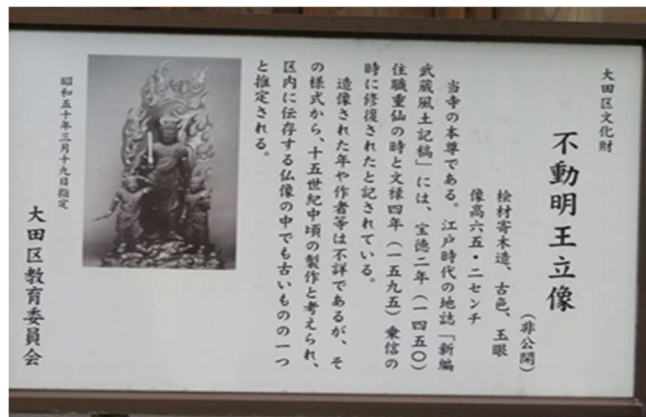 大田区文化財
不動明王立像
（非公開）
桧材寄木造、古色、玉眼
像高六五・二センチ
当寺の本尊である。江戸時代の地誌「新編
武蔵風土記稿」には、宝徳二年（一四五〇）
住職重仙の時と文禄四年（一五九五）乗信の
時に修復されたと記されている。
造像された年や作者等は不詳であるが、そ
の様式から、十五世紀中頃の製作と考えられ、
区内に伝存する仏像の中でも古いものの一つ
と推定される。
昭和五十年三月十九日指定
大田区教育委員会